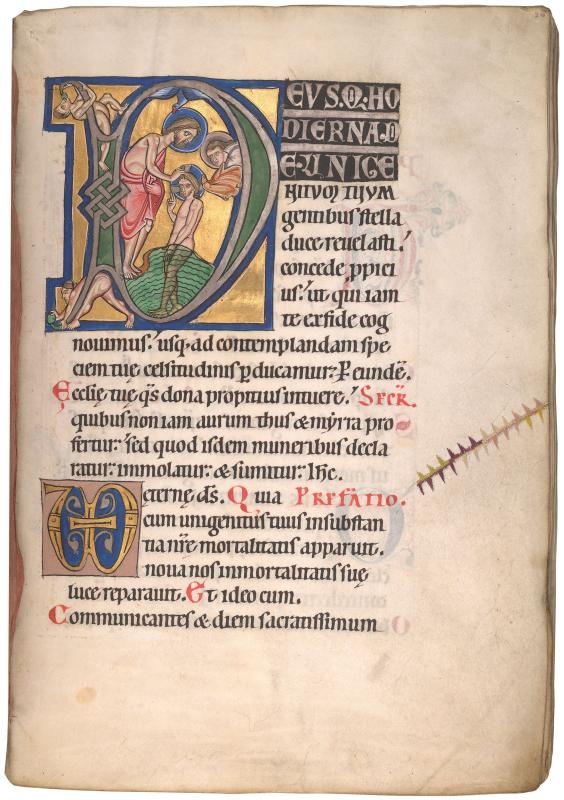 DEUS. Q. HO
DIERNA. D
E. UNIGE
NITUM TUUM
gentibus stella
duce revelasti.
concede ppici
us. ut qui iam
te ex fide cog
novimus. usq. ad contemplandam spe
ciem tuę celsitudinis pducamur. P eundē.
Ecclię tuę q̄s dona propitius intuere. SECR.
quibus non iam aurum thus & myrra pro
fertur. sed quod isdem muneribus decla
ratur. immolatur. & sumitur. Ihc.
VD eternę d̄s. Quia PREFATIO.
cum unigenitus tuus in substan
tia nr̄e mortalitatis apparuit.
nova nos inmortalitatis suę
luce reparavit. Et ideo cum.
Communicantes & diem sacratissimum